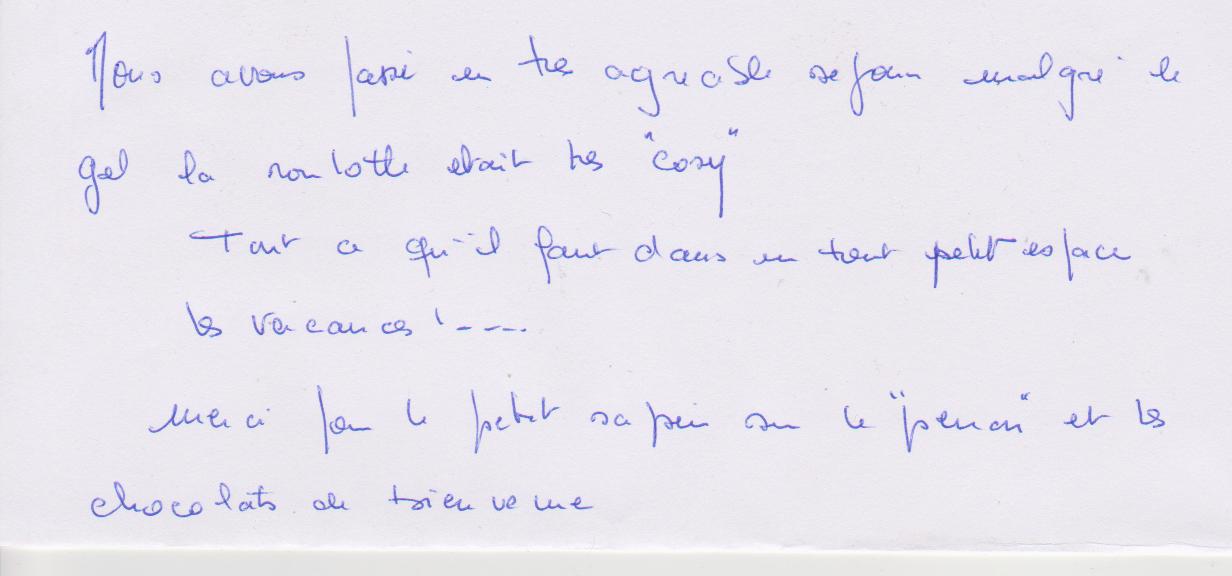 Nous avons passé un très agréable séjour malgré le
gel la roulotte etait très "cosy"
Tout ce qu'il faut dans un tout petit espace
les vacances !----.
Merci pour le petit sapin sur le "perron" et les
chocolats de bienvenue